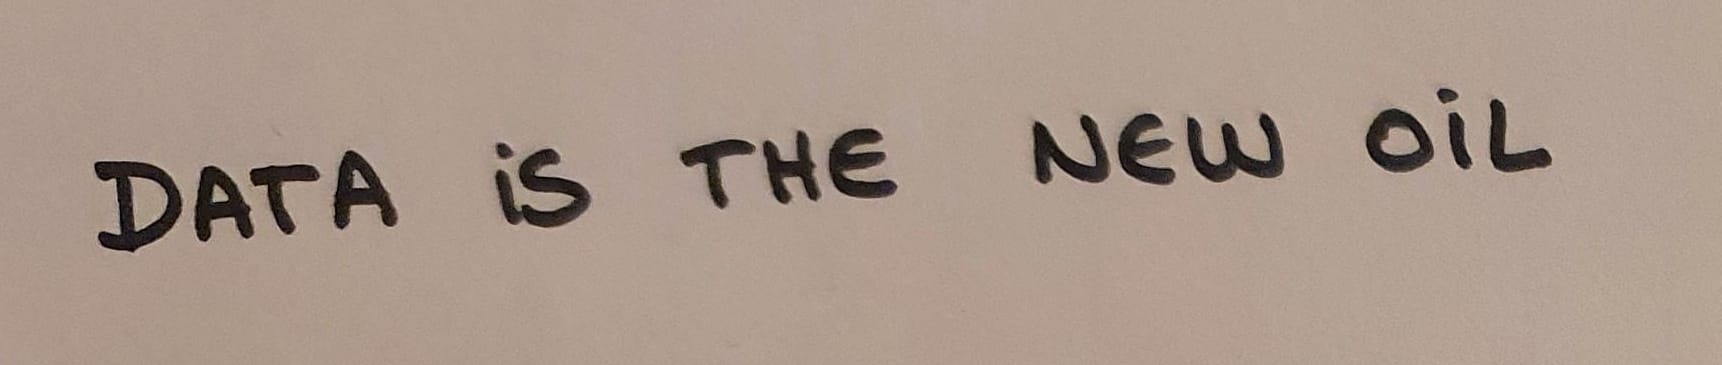 DATA iS THE NEW OiL